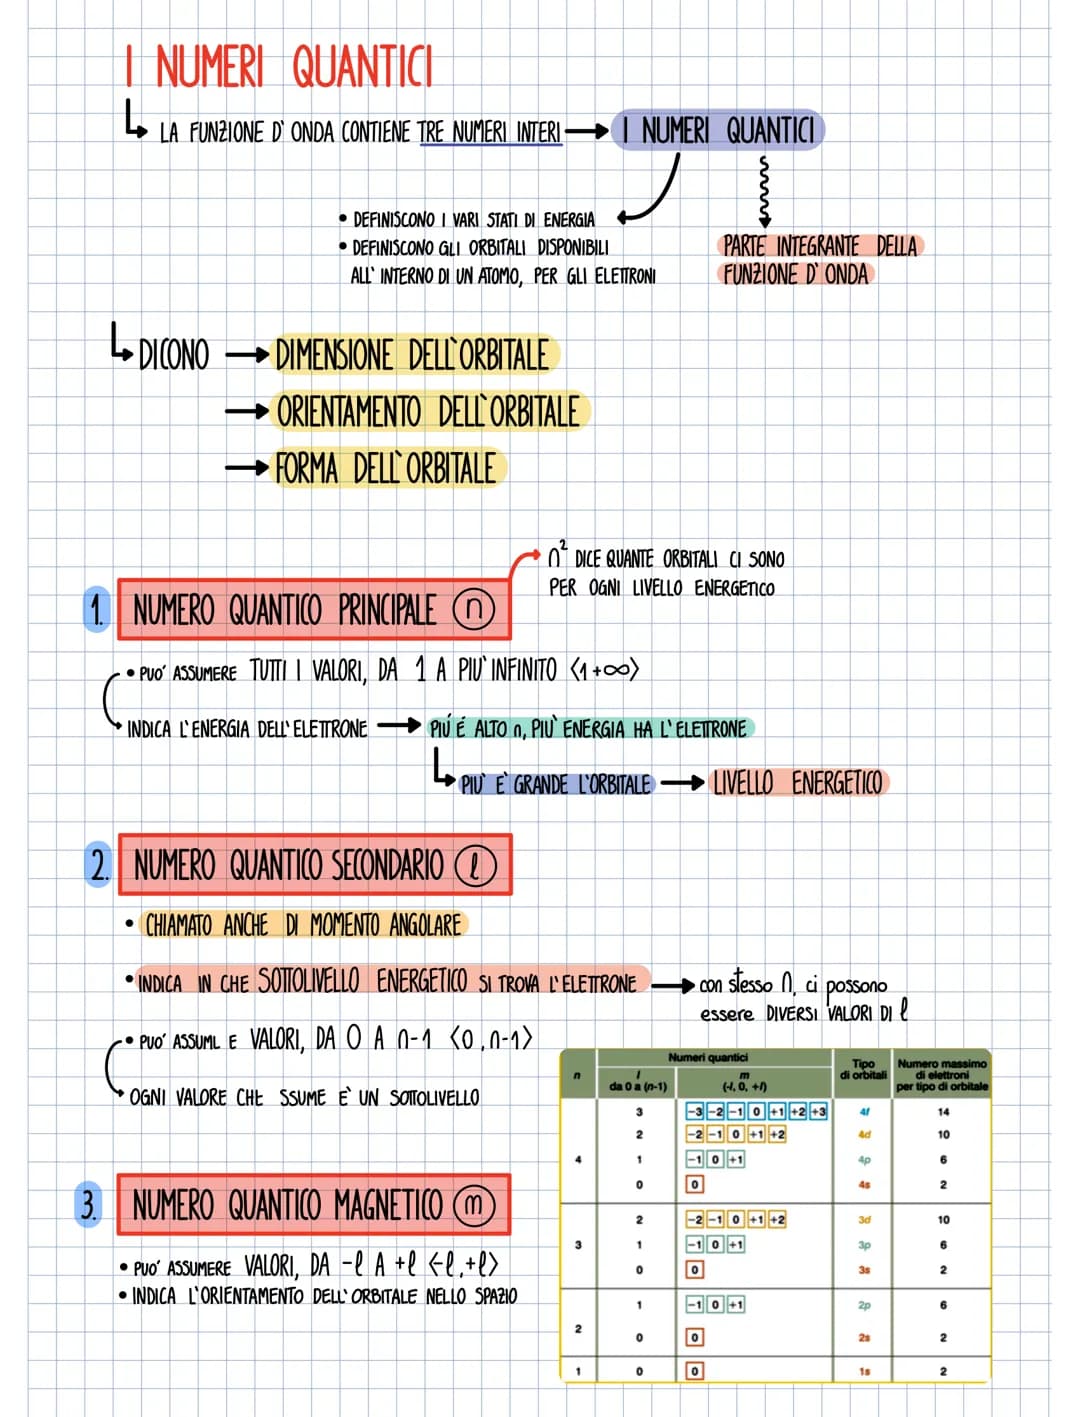 I NUMERI QUANTICI
LA FUNZIONE D' ONDA CONTIENE TRE NUMERI INTERI → I NUMERI QUANTICI
• DEFINISCONO I VARI STATI DI ENERGIA
• DEFINISCONO GLI ORBITALI DISPONIBILI
ALL' INTERNO DI UN ATOMO, PER GLI ELETTRONI
PARTE INTEGRANTE DELLA
FUNZIONE D' ONDA
DICONO → DIMENSIONE DELL'ORBITALE
→ ORIENTAMENTO DELL'ORBITALE
→ FORMA DELL'ORBITALE
n² DICE QUANTE ORBITALI CI SONO
PER OGNI LIVELLO ENERGETICO
1. NUMERO QUANTICO PRINCIPALE n
• PUO' ASSUMERE TUTTI I VALORI, DA 1 A PIU' INFINITO <1+∞>
INDICA L'ENERGIA DELL'ELETTRONE → PIÚ É ALTO n, PIU' ENERGIA HA L'ELETTRONE
PIU' E' GRANDE L'ORBITALE → LIVELLO ENERGETICO
2. NUMERO QUANTICO SECONDARIO ℓ
• CHIAMATO ANCHE DI MOMENTO ANGOLARE
• INDICA IN CHE SOTTOLIVELLO ENERGETICO SI TROVA L'ELETTRONE → con stesso n, ci possono
essere DIVERSI VALORI DI ℓ
• PUO' ASSUML E VALORI, DA 0 A n-1 <0,n-1>
OGNI VALORE CHE SSUME E' UN SOTTOLIVELLO
3. NUMERO QUANTICO MAGNETICO m
• PUO' ASSUMERE VALORI, DA -ℓ A +ℓ <-ℓ,+ℓ>
• INDICA L'ORIENTAMENTO DELL'ORBITALE NELLO SPAZIO
Numeri quantici
n
l
da 0 a (n-1)
m
(-l, 0, +l)
Tipo
di orbitali
Numero massimo
di elettroni
per tipo di orbitale
3 -3 -2 -1 0 +1 +2 +3 4f 14
2 -2 -1 0 +1 +2 4d 10
4 1 -1 0 +1 4p 6
0 0 4s 2
2 -2 -1 0 +1 +2 3d 10
3 1 -1 0 +1 3p 6
0 0 3s 2
1 -1 0 +1 2p 6
2
0 0 2s 2
1 0 0 1s 2